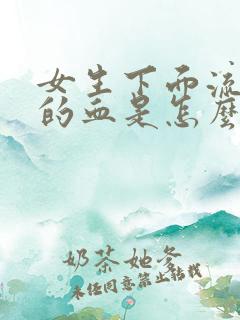 女生下面流
的血是怎麽
奶茶她爹
未经同意禁止转载